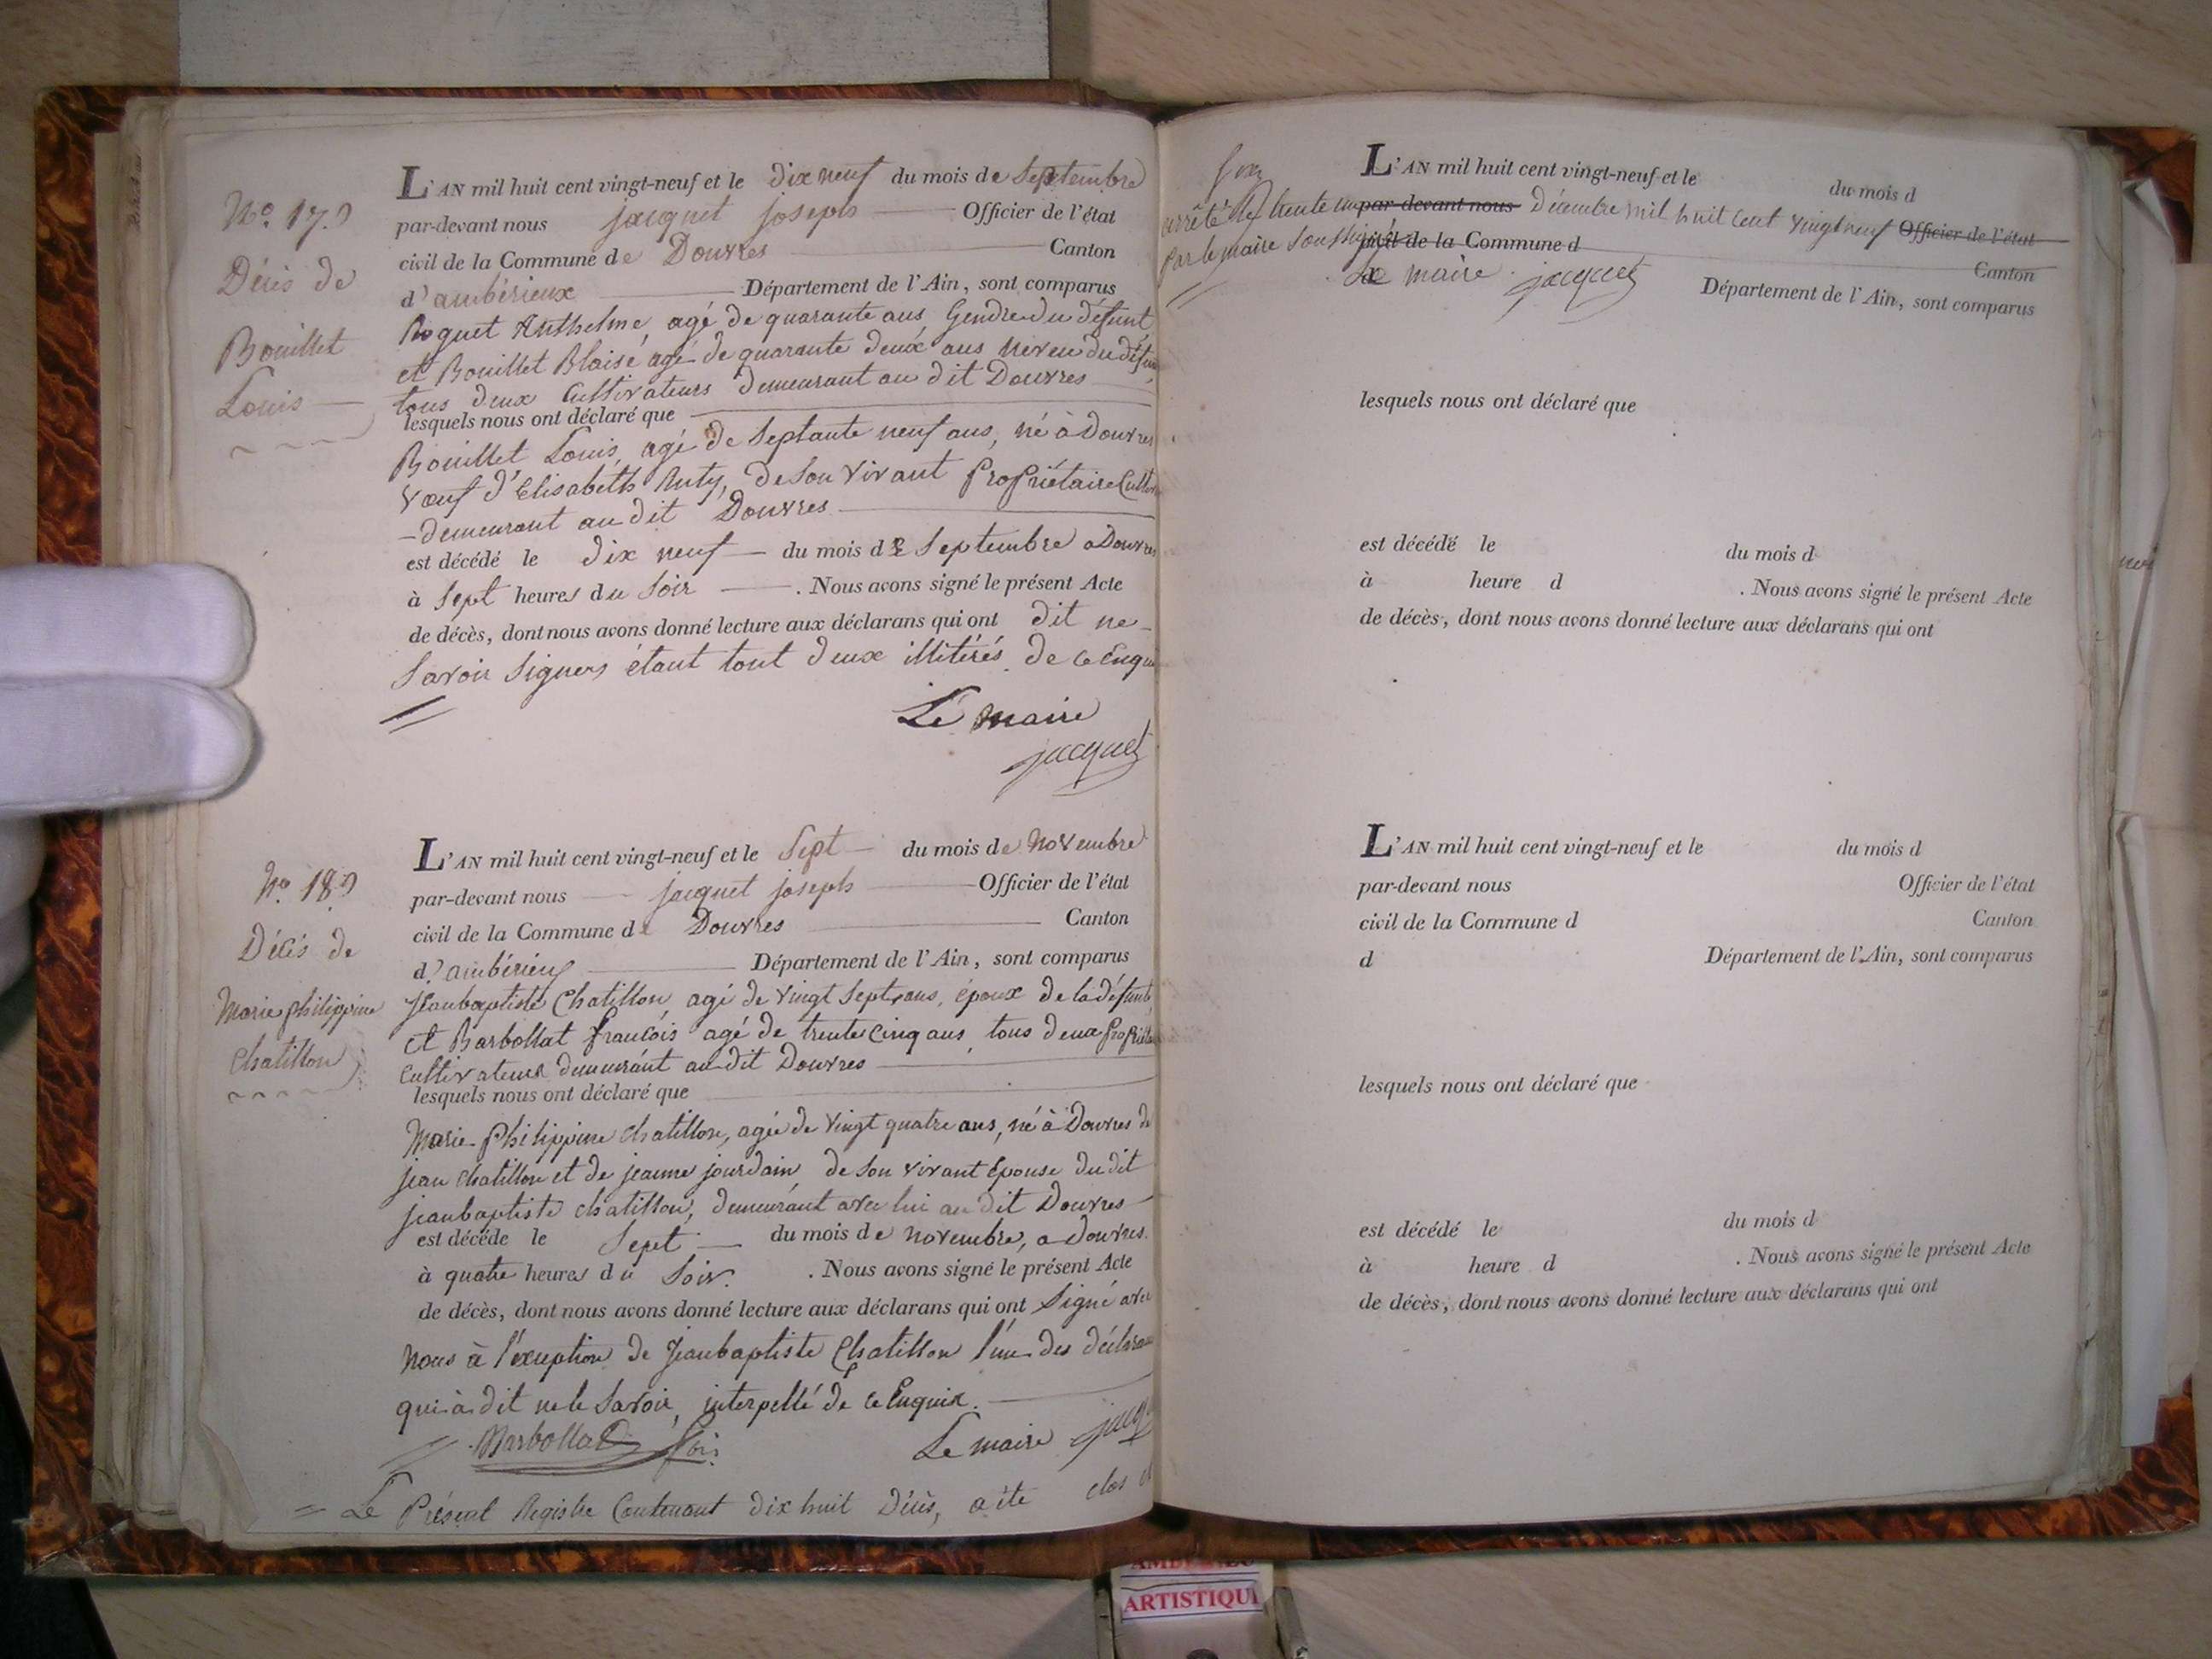 N.º 17.
Décès de
Bouillet
Louis
L'AN mil huit cent vingt-neuf et le dix neuf du mois de Septembre
par-devant nous jacquet joseph Officier de l'état
civil de la Commune de Douvres Canton
d'ambérieux Département de l'Ain, sont comparus
Roguet Anthelme, agé de quarante ans, Gendre du défunt
et Bouillet Blaise agé de quarante deux ans neveu du défunt
tous deux Cultivateurs demeurant au dit Douvres
lesquels nous ont déclaré que
Bouillet Louis, agé de Septante neuf ans, né à Douvres
vœuf d'Elisabeth Auty, de Son vivant Propriétaire
demeurant au dit Douvres
est décédé le dix neuf du mois de Septembre a Douvres
à Sept heures du Soir . Nous avons signé le présent Acte
de décès, dont nous avons donné lecture aux déclarans qui ont dit ne
Savoir Signer étant tout deux illitérés de ce
Le maire
jacquet
N.º 18.
Décès de
Marie philippine
Chatillon
L'AN mil huit cent vingt-neuf et le Sept du mois de Novembre
par-devant nous jacquet joseph Officier de l'état
civil de la Commune de Douvres Canton
d'ambérieux Département de l'Ain, sont comparus
Jeanbaptiste Chatillon, agé de vingt Sept ans, époux de la défunte
et Barbollat francois agé de trente Cinq ans, tous deux
Cultivateurs demeurant au dit Douvres
lesquels nous ont déclaré que
Marie-Philippine chatillon, agée de vingt quatre ans, né à Douvres de
jean chatillon et de jeanne jourdain, de Son vivant Epouse du dit
jeanbaptiste chatillon, demeurant avec lui au dit Douvres
est décédé le Sept du mois de novembre, a Douvres
à quatre heures du Soir. . Nous avons signé le présent Acte
de décès, dont nous avons donné lecture aux déclarans qui ont Signé avec
Nous à l'exeption de Jeanbaptiste Chatillon l'un des
qui à dit ne le Savoir, interpellé de ce Enquis.
Barbollat fois Le maire
Le Présent Registre Contenant dix huit Décès, a été clos et
L'AN mil huit cent vingt-neuf et le du mois d
arrêté le trente un par-devant nous Décembre mil huit cent vingt neuf Officier de l'état
Par le maire Soussigné civil de la Commune d Canton
Le maire jacquet Département de l'Ain, sont comparus
lesquels nous ont déclaré que
est décédé le du mois d
à heure d . Nous avons signé le présent Acte
de décès, dont nous avons donné lecture aux déclarans qui ont
L'AN mil huit cent vingt-neuf et le du mois d
par-devant nous Officier de l'état
civil de la Commune d Canton
d Département de l'Ain, sont comparus
lesquels nous ont déclaré que
est décédé le du mois d
à heure d . Nous avons signé le présent Acte
de décès, dont nous avons donné lecture aux déclarans qui ont
ARTISTIQU